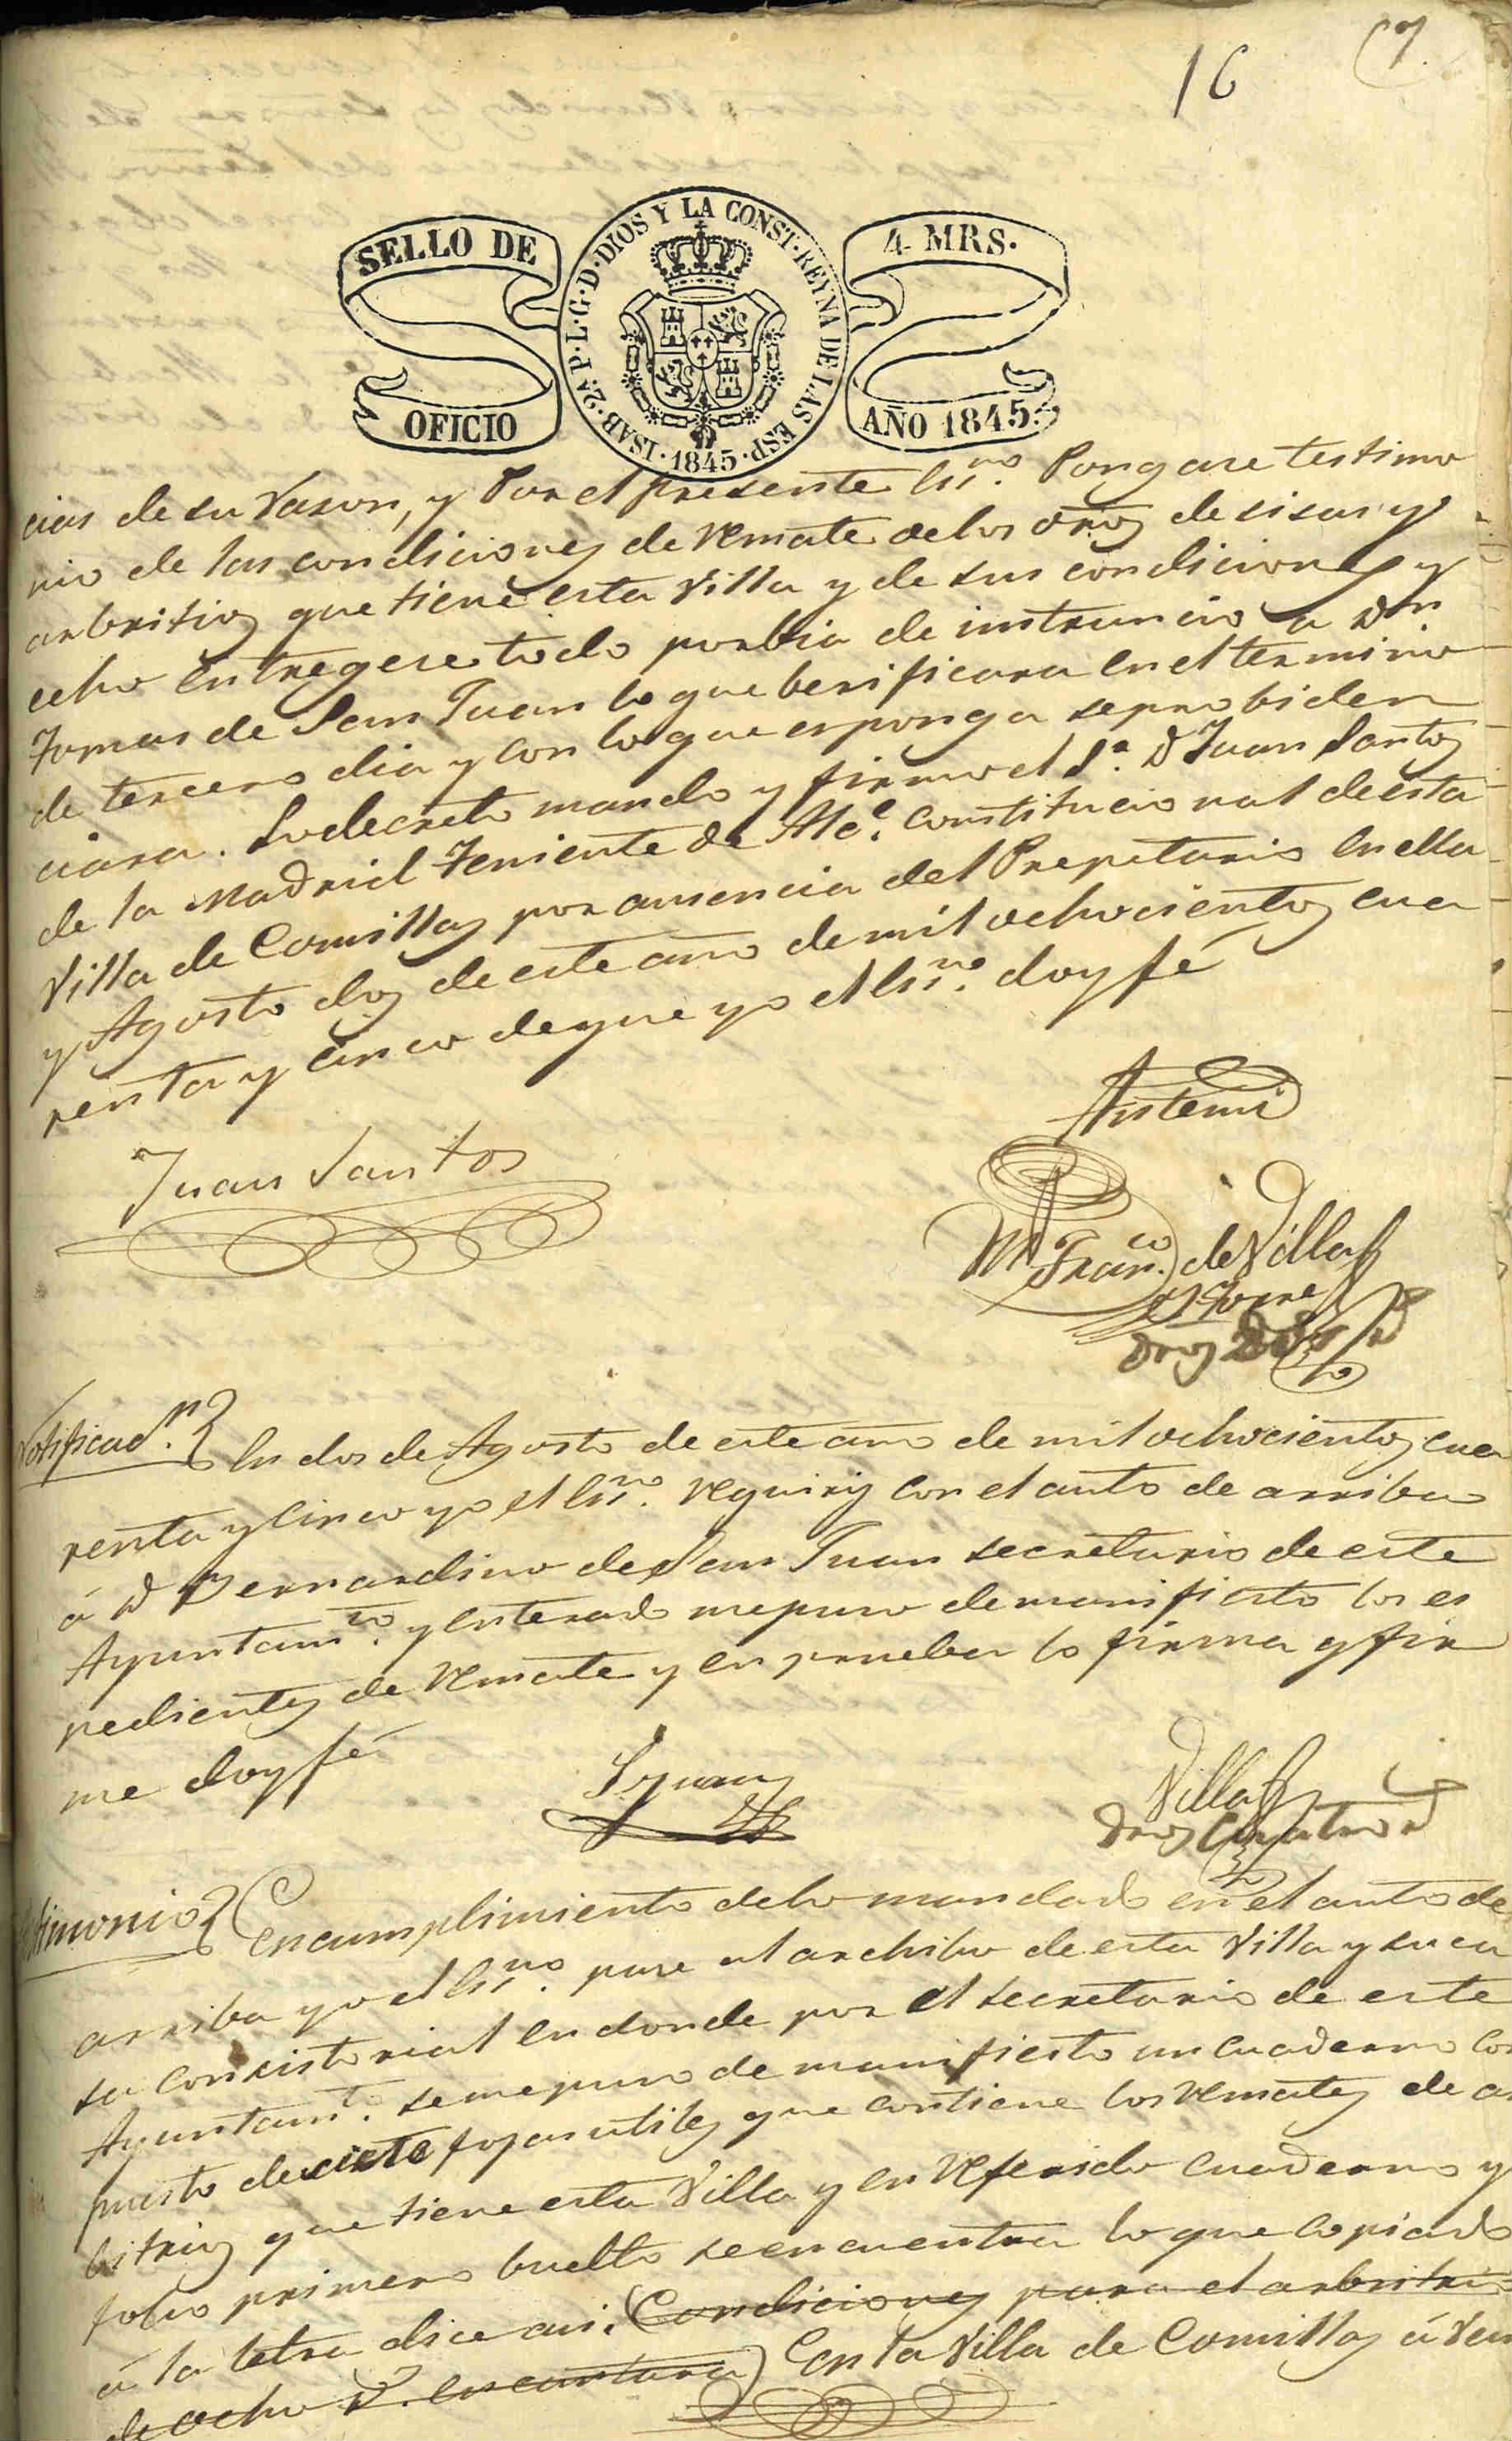 16 (7.
SELLO DE
OFICIO
ISAB. 2ª P. L. G. D. DIOS Y LA CONST. REYNA DE LAS ESP. 1845
4 MRS.
AÑO 1845.
cias de su razon, y Por el presente Esno. Pongase testimo
nio de las condiciones de remate de los dros de sisas y
arbritios que tiene esta Villa y de sus condiciones y
echo entregese todo por bia de instruncion a Dn
Tomas de San Juan lo que berificara en el termino
de tercero dia y con lo que esponga se probiden
ciara. Lo decreto mando y firmo el Sr. D Juan Santos
de la Madrid Teniente de Alce. Constitucional de esta
Villa de Comillas por ausencia del Propetario en ella
y Agosto dos de este año de mil ochocientos cua
renta y cinco de que yo el Esno. doy fé
Juan Santos
Antemi
M Franco. de Villa
Torre
Notificacn. En dos de Agosto de este año de mil ochocientos cua
renta y cinco yo el Esno. requiriy con el auto de arriba
á D Bernardino de San Juan secretario de este
Ayuntamto. y enterado me puso de manifiesto los es
pedientes de remate y en prueba lo firma y fir
me doy fé
Sn Juan
Villa
timonio En cumplimiento de lo mandado en el auto de
arriba yo el Esno. pase al archibo de esta Villa y su ca
sa consistorial en donde por el secretario de este
Ayuntamto. se me puso de manifiesto un cuaderno com
puesto de siete fojas utiles que contiene los remates de ar
bitrios que tiene esta Villa y en referido cuaderno y
folio primero buelto se encuentra lo que copiado
á la letra dice asi. (Condiciones para el arbitrio
de ocho rs. en cantara) En la Villa de Comillas á vein